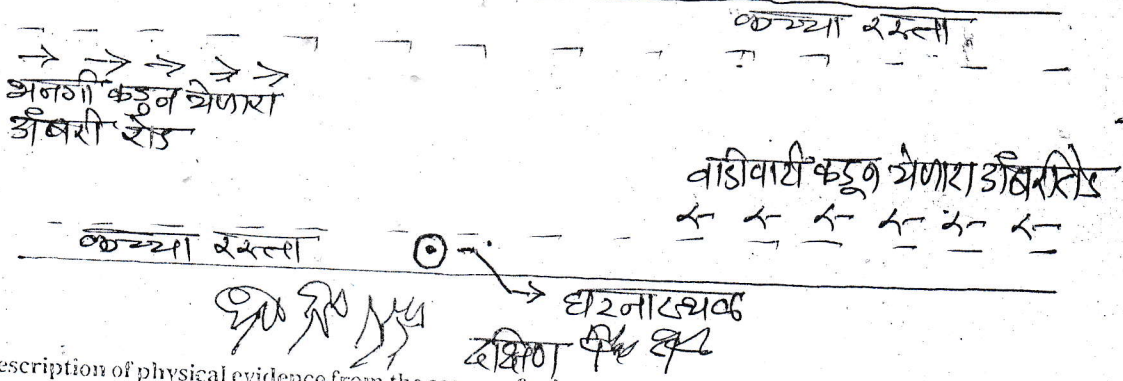 कच्चा रस्ता
भनगी कडून येणारा
डांबरी रोड
वाडीवाटी कडून येणारा डांबरीरोड
कच्चा रस्ता
घटनास्थळ
दक्षिण
escription of physical evidence from the